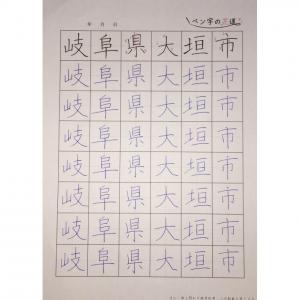 年 月 日
ペン字の王道
岐阜県大垣市
岐阜県大垣市
岐阜県大垣市
岐阜県大垣市
岐阜県大垣市
岐阜県大垣市
岐阜県大垣市
岐阜県大垣市